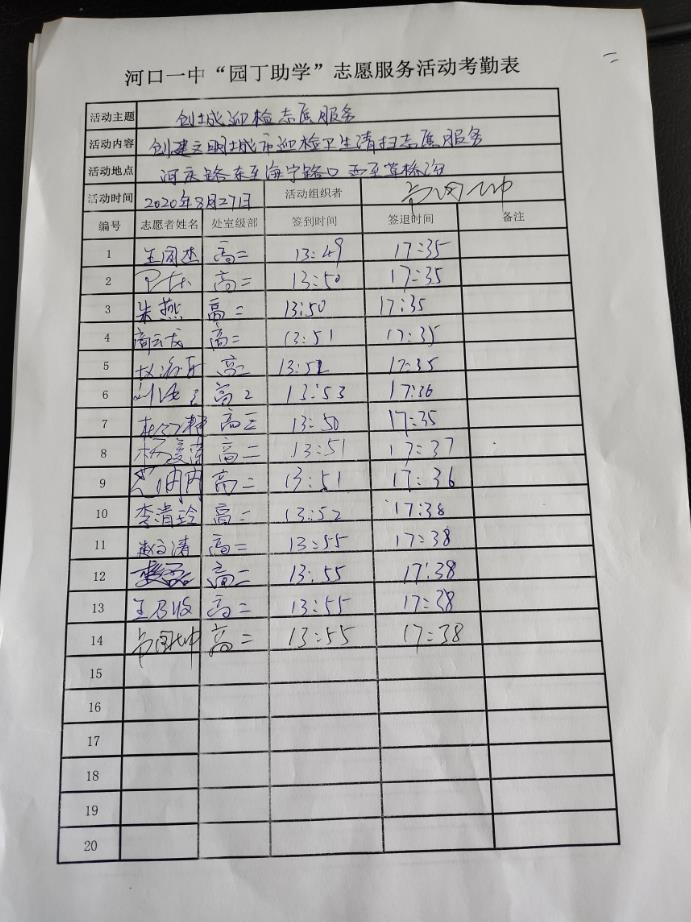 河口一中“园丁助学”志愿服务活动考勤表
活动主题 创城迎检志愿服务
活动内容 创建文明城市迎检卫生清扫志愿服务
活动地点 河庆路东至海宁路口西至草桥沟
活动时间 2020年8月27日 活动组织者
编号 志愿者姓名 处室级部 签到时间 签退时间 备注
1 高二 13:49 17:35
2 高二 13:50 17:35
3 朱燕 高二 13:50 17:35
4 高二 13:51 17:35
5 高二 13:52 17:35
6 高2 13:53 17:36
7 高三 13:50 17:35
8 高二 13:51 17:37
9 高二 13:51 17:36
10 李清玲 高二 13:52 17:38
11 高二 13:55 17:38
12 高二 13:55 17:38
13 高二 13:55 17:38
14 高二 13:55 17:38
15
16
17
18
19
20